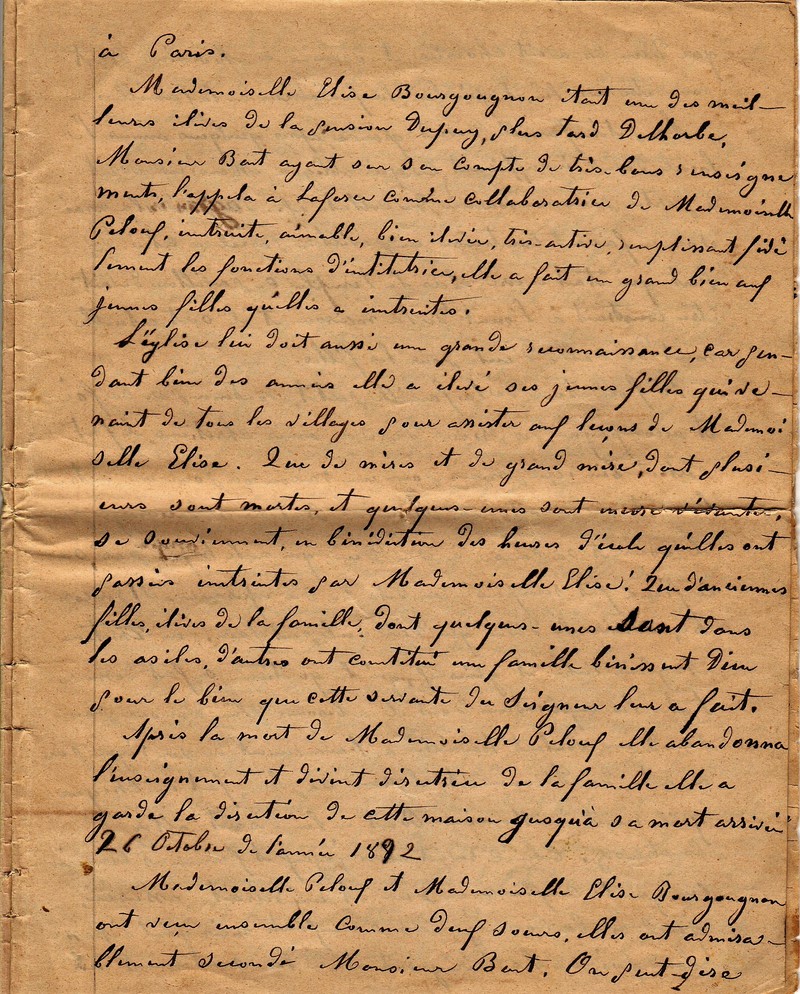 à Paris.
Mademoiselle Elise Bourgougnon était une des meil-
leures élèves de la pension Dupuy, plus tard Delhorbe,
Monsieur Bost ayant sur son compte de très-bons renseigne
ments, l'appela à Laforce comme collaboratrice de Mademoiselle
Pelouf, instruite, aimable, bien élevée, très-active, remplissant fidè
lement les fonctions d'institutrice, elle a fait un grand bien aux
jeunes filles qu'elles a instruites.
L'église lui doit aussi une grande reconnaissance, car pen-
dant bien des années elle a élevé ses jeunes filles qui ve-
nait de tous les villages pour assister aux leçons de Mademoi
selle Elise. Que de mères et de grand mère, dont plusi-
eurs sont mortes, et quelques-unes sont encore vivantes,
se souviennent, en bénédiction des heures d'école qu'elles ont
passées instruites par Mademoiselle Elise! Que d'anciennes
filles, élèves de la famille, dont quelques-unes sont dans
les asiles, d'autres ont constitué une famille bénissent Dieu
pour le bien que cette servante du Seigneur leur a fait.
Après la mort de Mademoiselle Pelouf elle abandonna
l'enseignement et devint directrice de la famille elle a
garde la direction de cette maison jusqu'à sa mort arrivée
26 Octobre de l'année 1892
Mademoiselle Pelouf et Mademoiselle Elise Bourgougnon
ont vécu ensemble comme deux soeurs, elles ont admira-
blement secondé Monsieur Bost. On peut dire